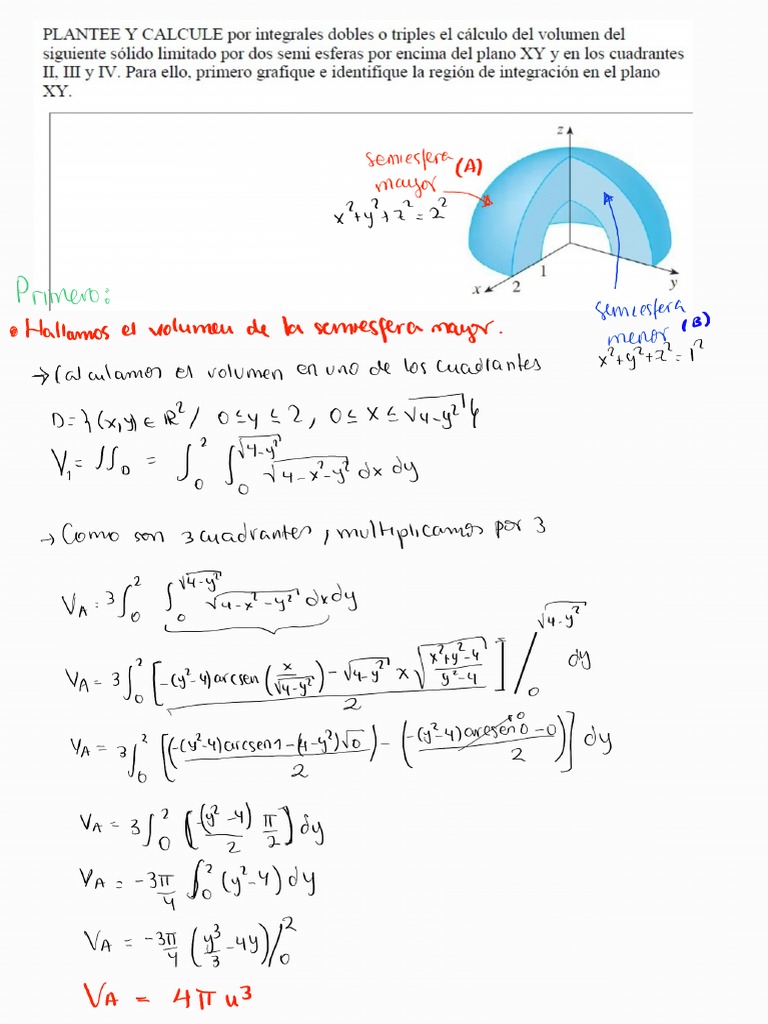 PLANTEE Y CALCULE por integrales dobles o triples el cálculo del volumen del
siguiente sólido limitado por dos semi esferas por encima del plano XY y en los cuadrantes
II, III y IV. Para ello, primero grafique e identifique la región de integración en el plano
XY.
z
semiesfera (A)
mayor
x²+y²+z²=2²
1
x 2 y
Primero:
semiesfera
menor (B)
x²+y²+z²=1²
• Hallamos el volumen de la semiesfera mayor.
→ Calculamos el volumen en uno de los cuadrantes
D={(x,y)∈ℝ²/ 0≤y≤2, 0≤x≤√(4-y²)}
V₁=∫∫_D = ∫₀² ∫₀^√(4-y²) √(4-x²-y²) dx dy
→ Como son 3 cuadrantes, multiplicamos por 3
V_A = 3∫₀² ∫₀^√(4-y²) √(4-x²-y²) dx dy
V_A = 3∫₀² [(-(y²-4)arcsen(x/√(4-y²)) - √(4-y²) x √((x²+y²-4)/(y²-4)))/2] /₀^√(4-y²) dy
V_A = 3∫₀² [((-(y²-4)arcsen1-(4-y²)√0)/2) - ((-(y²-4)arcsen0-0)/2)] dy
V_A = 3∫₀² [(-(y²-4)/2) π/2] dy
V_A = -3π/4 ∫₀² (y²-4) dy
V_A = -3π/4 (y³/3 - 4y)/₀²
V_A = 4π u³